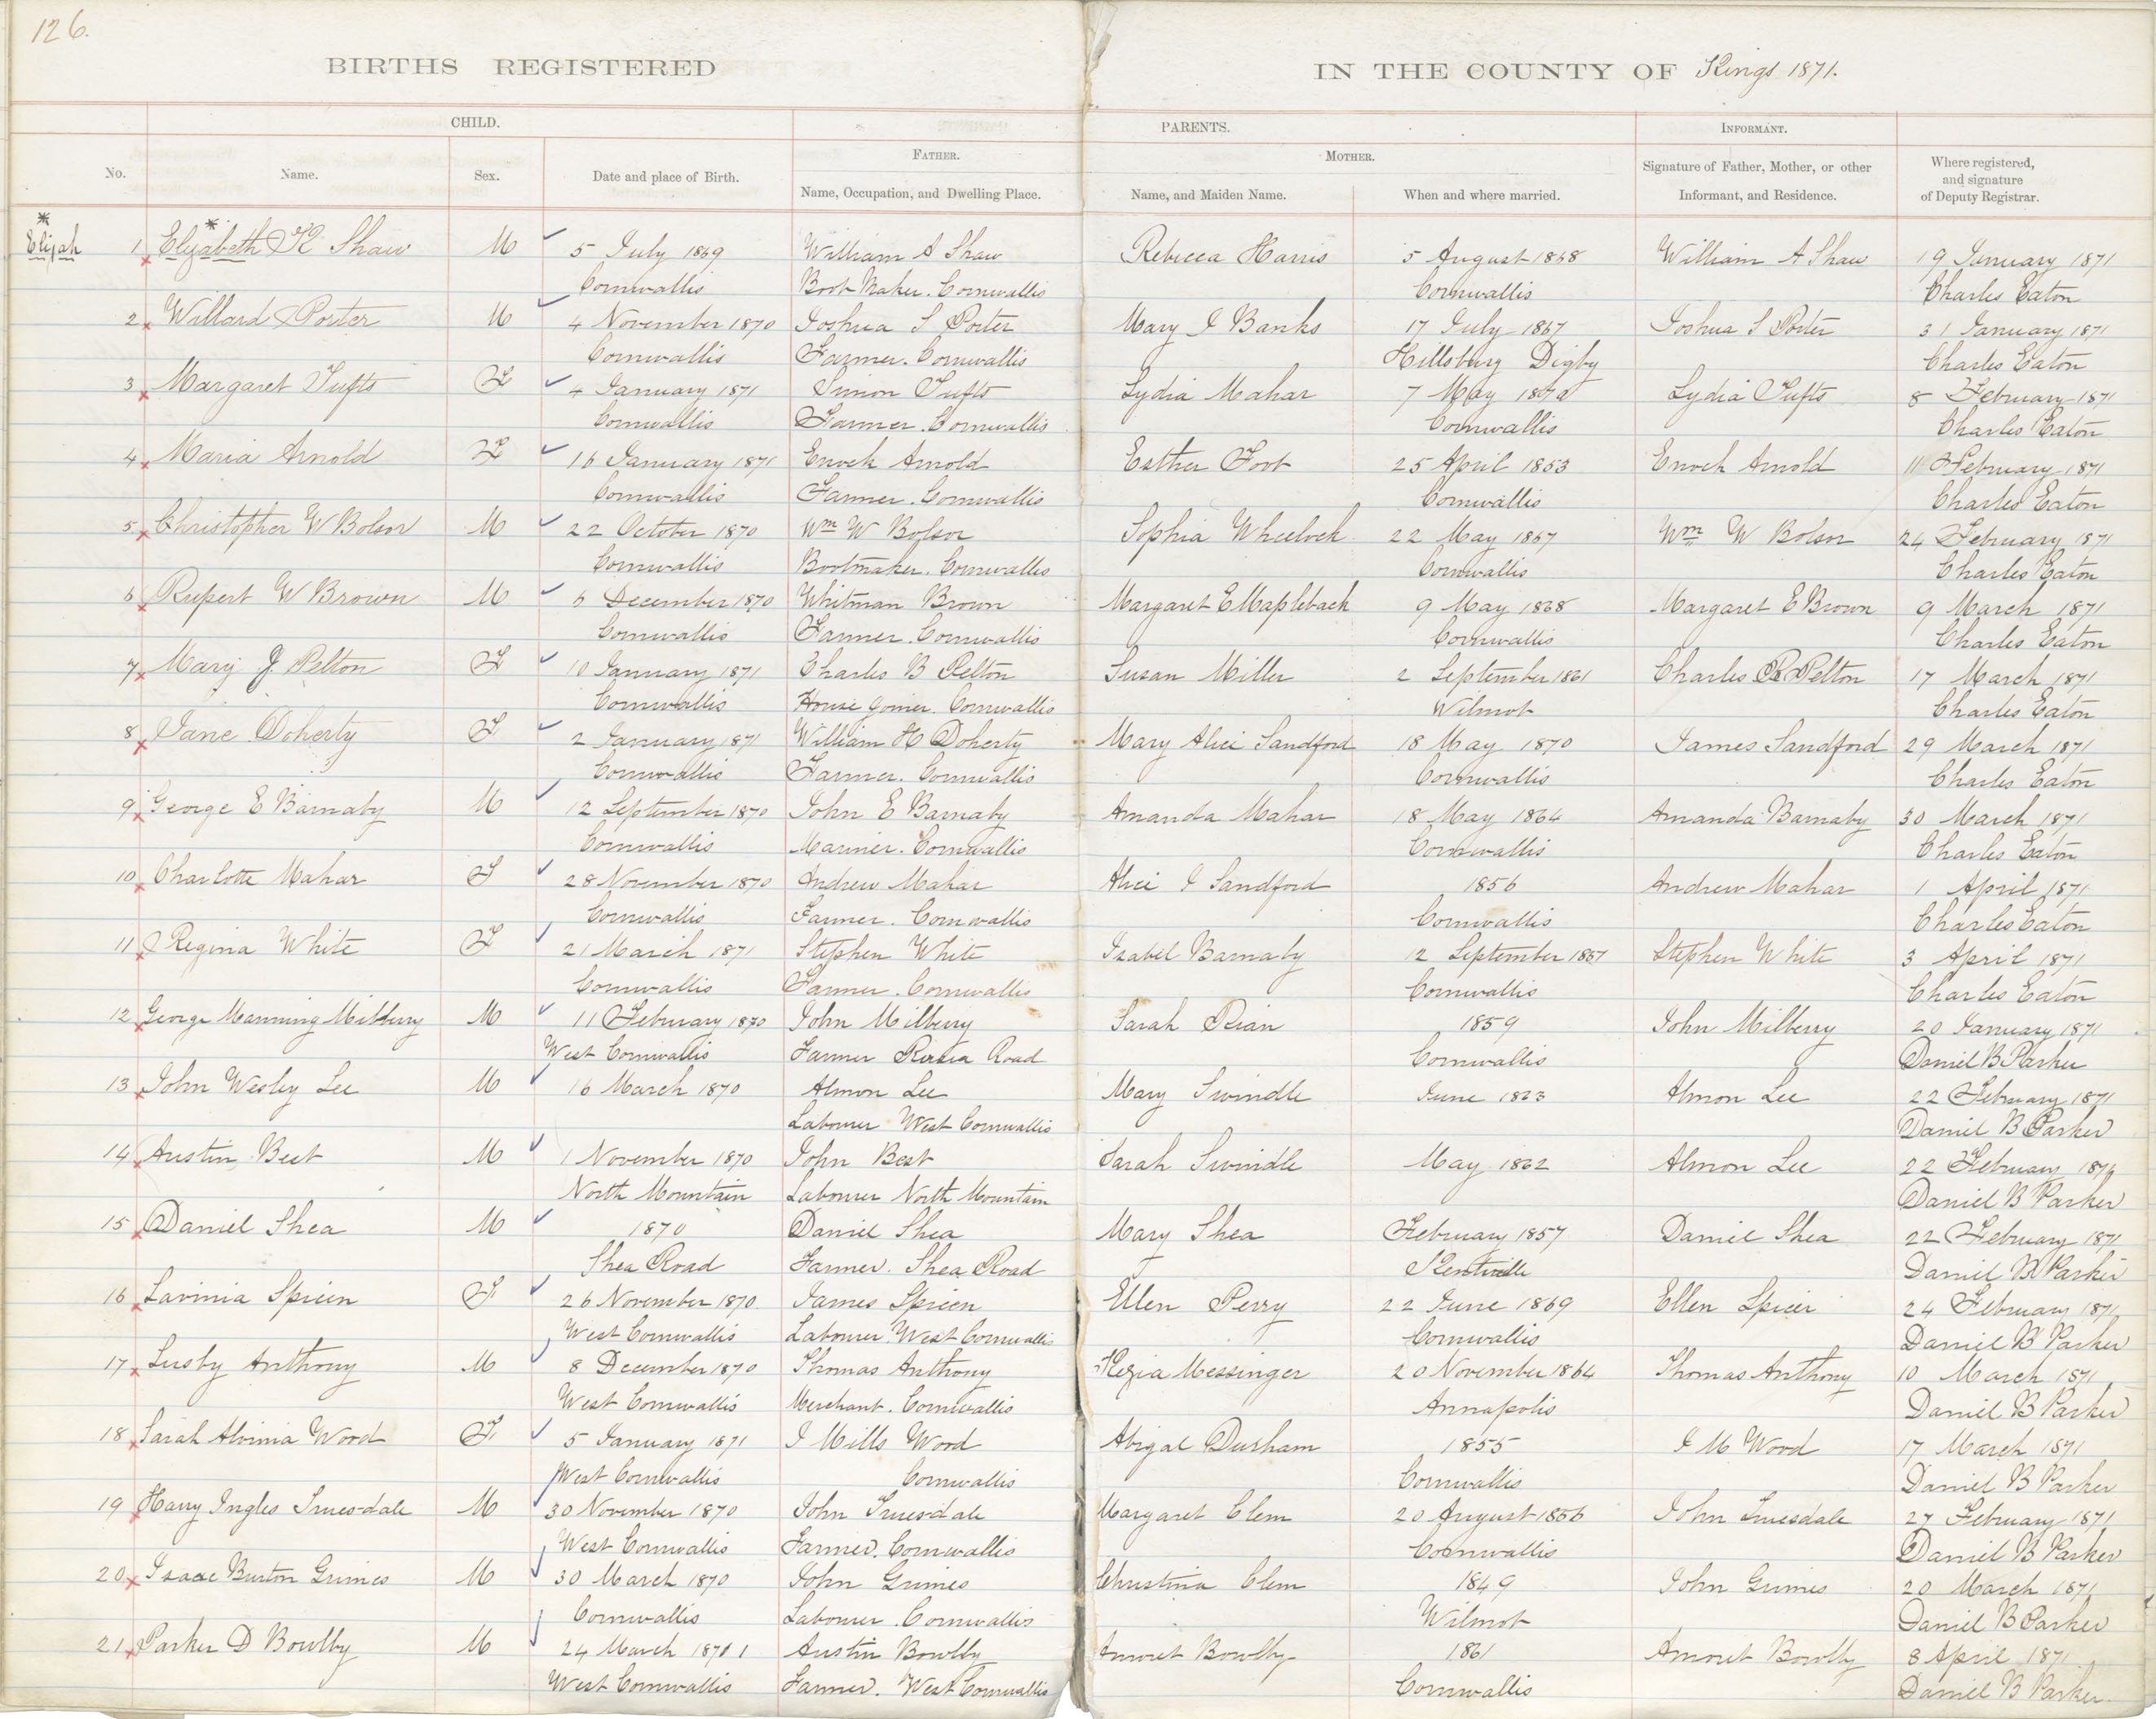 126.
BIRTHS REGISTERED IN THE COUNTY OF Kings 1871.
CHILD. PARENTS. INFORMANT.
FATHER. MOTHER.
No. Name. Sex. Date and place of Birth. Name, Occupation, and Dwelling Place. Name, and Maiden Name. When and where married. Signature of Father, Mother, or other Informant, and Residence. Where registered, and signature of Deputy Registrar.
* Elijah 1 Elizabeth * R Shaw M 5 July 1869 William A Shaw Rebecca Harris 5 August 1868 William A Shaw 19 January 1871
Cornwallis Boot Maker. Cornwallis Cornwallis Charles Eaton
2 Willard Porter M 4 November 1870 Joshua S Porter Mary J Banks 17 July 1867 Joshua S Porter 31 January 1871
Cornwallis Farmer. Cornwallis Hillsburg Digby Charles Eaton
3 Margaret Tufts F 4 January 1871 Simon Tufts Lydia Mahar 7 May Lydia Tufts 8 February 1871
Cornwallis Farmer. Cornwallis Cornwallis Charles Eaton
4 Maria Arnold F 16 January 1871 Enoch Arnold Esther Foot 25 April 1853 Enoch Arnold 11 February 1871
Cornwallis Farmer. Cornwallis Cornwallis Charles Eaton
5 Christopher W Bolsor M 22 October 1870 Wm W Bolsor Sophia Wheelock 22 May 1867 Wm W Bolsor 24 February 1871
Cornwallis Bootmaker. Cornwallis Cornwallis Charles Eaton
6 Rupert W Brown M 6 December 1870 Whitman Brown Margaret E Mapleback 9 May 1868 Margaret E Brown 9 March 1871
Cornwallis Farmer. Cornwallis Cornwallis Charles Eaton
7 Mary J. Pelton F 10 January 1871 Charles B Pelton Susan Miller 2 September 1861 Charles Pelton 17 March 1871
Cornwallis House Joiner. Cornwallis Wilmot Charles Eaton
8 Jane Doherty F 2 January 1871 William H Doherty Mary Alice Sandford 18 May 1870 James Sandford 29 March 1871
Cornwallis Farmer. Cornwallis Cornwallis Charles Eaton
9 George E Barnaby M 12 September 1870 John E Barnaby Amanda Mahar 18 May 1864 Amanda Barnaby 30 March 1871
Cornwallis Mariner. Cornwallis Cornwallis Charles Eaton
10 Charlotte Mahar F 28 November 1870 Andrew Mahar Alice J Sandford 1856 Andrew Mahar 1 April 1871
Cornwallis Farmer. Cornwallis Cornwallis Charles Eaton
11 Regina White F 21 March 1871 Stephen White Isabel Barnaby 12 September 1867 Stephen White 3 April 1871
Cornwallis Farmer. Cornwallis Cornwallis Charles Eaton
12 George Manning Milberry M 11 February 1870 John Milberry Sarah Rian 1859 John Milberry 20 January 1871
West Cornwallis Farmer Road Cornwallis Daniel B Parker
13 John Wesley Lee M 16 March 1870 Almon Lee Mary Swindle June Almon Lee 22 February 1871
Labourer West Cornwallis Daniel B Parker
14 Austin Best M 1 November 1870 John Best Sarah Swindle May 1862 Almon Lee 22 February 1871
North Mountain Labourer North Mountain Daniel B Parker
15 Daniel Shea M 1870 Daniel Shea Mary Shea February 1857 Daniel Shea 22 February 1871
Shea Road Farmer. Shea Road Kentville Daniel B Parker
16 Lavinia Spicen F 26 November 1870. James Spicen Ellen Perry 22 June 1869 Ellen Spicer 24 February 1871
West Cornwallis Labourer. West Cornwallis Cornwallis Daniel B Parker
17 Lusby Anthony M 8 December 1870 Thomas Anthony Kezia Messinger 20 November 1864 Thomas Anthony 10 March 1871
West Cornwallis Merchant. Cornwallis Annapolis Daniel B Parker
18 Sarah Alvinia Wood F 5 January 1871 J Mills Wood Abigal Durham 1855 J M Wood 17 March 1871
West Cornwallis Cornwallis Cornwallis Daniel B Parker
19 Harry Ingles Truesdale M 30 November 1870 John Truesdale Margaret Clem 20 August 1856 John Truesdale 27 February 1871
West Cornwallis Farmer. Cornwallis Cornwallis Daniel B Parker
20 Isaac Burton Grimes M 30 March 1870 John Grimes Christina Clem 1849 John Grimes 20 March 1871
Cornwallis Labourer. Cornwallis Wilmot Daniel B Parker
21 Parker D Bowlby M 24 March 1871 Austin Bowlby Amoret Bowlby 1861 Amoret Bowlby 8 April 1871
West Cornwallis Farmer. West Cornwallis Cornwallis Daniel B Parker